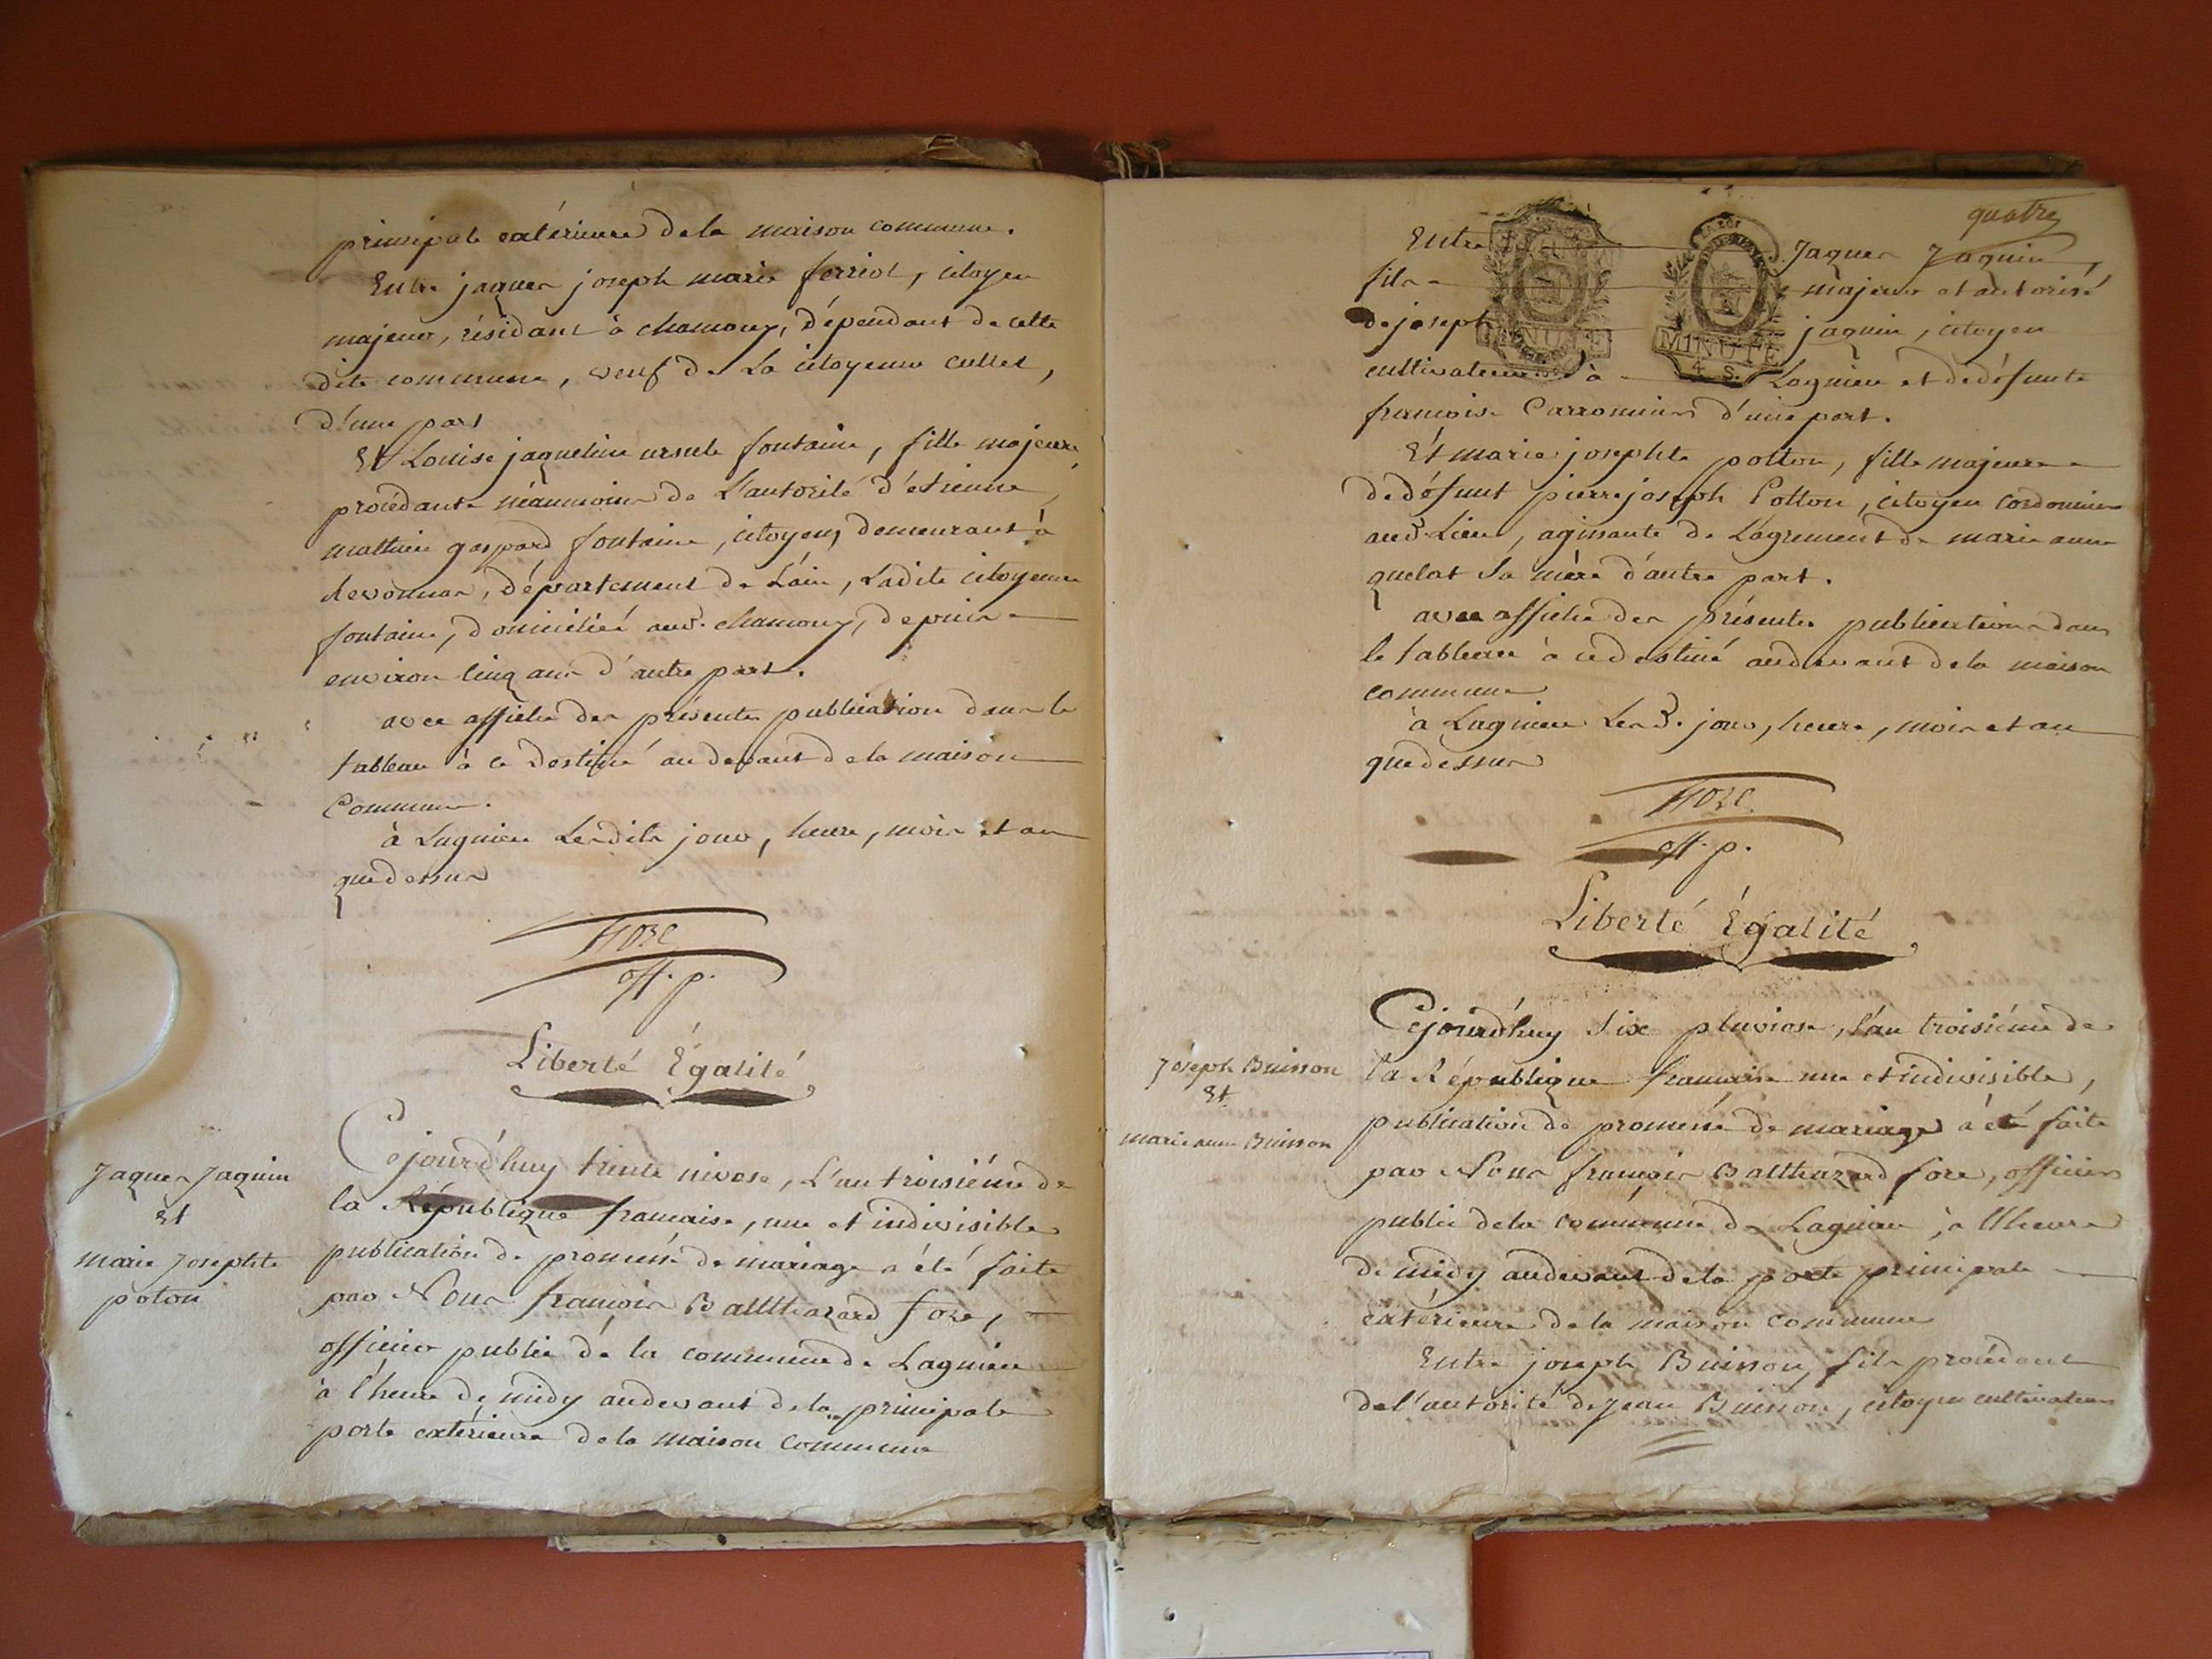 principale extérieure de la maison commune.
Entre jaques joseph marie ferriol, citoyen
majeur, résidant à chamoux, dépendant de cette
dite commune, veuf de La citoyenne cullet,
d'une part
Et Louise jaqueline ursule fontaine, fille majeure,
procédante néanmoins de L'autorité d'etienne
mathieu gaspard fontaine, citoyen, demeurant à
devonnas, département de L'ain, Ladite citoyenne
fontaine, domiciliée aud. chamoux, depuis
environ cinq ans d'autre part.
avec affiche des présentes publication dans le
tableau à ce destiné au devant de la maison
Commune.
à Lagnieu Lesdits jour, heure, mois et an
que dessus
fore
off. p.
Liberté Égalité
Jaques Jaquin
Et
marie Josephte
poton
Cejourd'huy trente nivose, L'an troisiéme de
la République francaise, une et indivisible
publication de promesse de mariage a été faite
par Nous françois Balthazard fore,
officier public de la commune de Lagnieu
à l'heure de midy au devant de la principale
porte extérieure de la maison commune
quatre
Entre Jaques Jaquin,
fils majeur et autorisé
de joseph jaquin, citoyen
cultivateur à Lagnieu et de défunte
francoise Carronnier d'une part.
MINUTE
MINUTE
4 S.
Et marie josephte potton, fille majeure
de défunt pierre joseph Potton, citoyen cordonnier
aud. Lieu, agissante de L'agrément de marie anne
quelat sa mère d'autre part.
avec affiche des présentes publications dans
le tableau à ce destiné au devant de la maison
commune
à Lagnieu Lesd. jour, heure, mois et an
que dessus
fore
off. p.
Liberté Égalité
Joseph Buisson
Et
marie anne Buisson
Cejourd'huy six pluviose, l'an troisiéme de
la République francaise une et indivisible,
publication de promesse de mariage a été faite
par Nous françois Balthazard fore, officier
public de la commune de Lagnieu, à l'heure
de midy au devant de la porte principale
extérieure de la maison commune
Entre joseph Buisson, fils procédant
de l'autorité de Jean Buisson, citoyen cultivateur